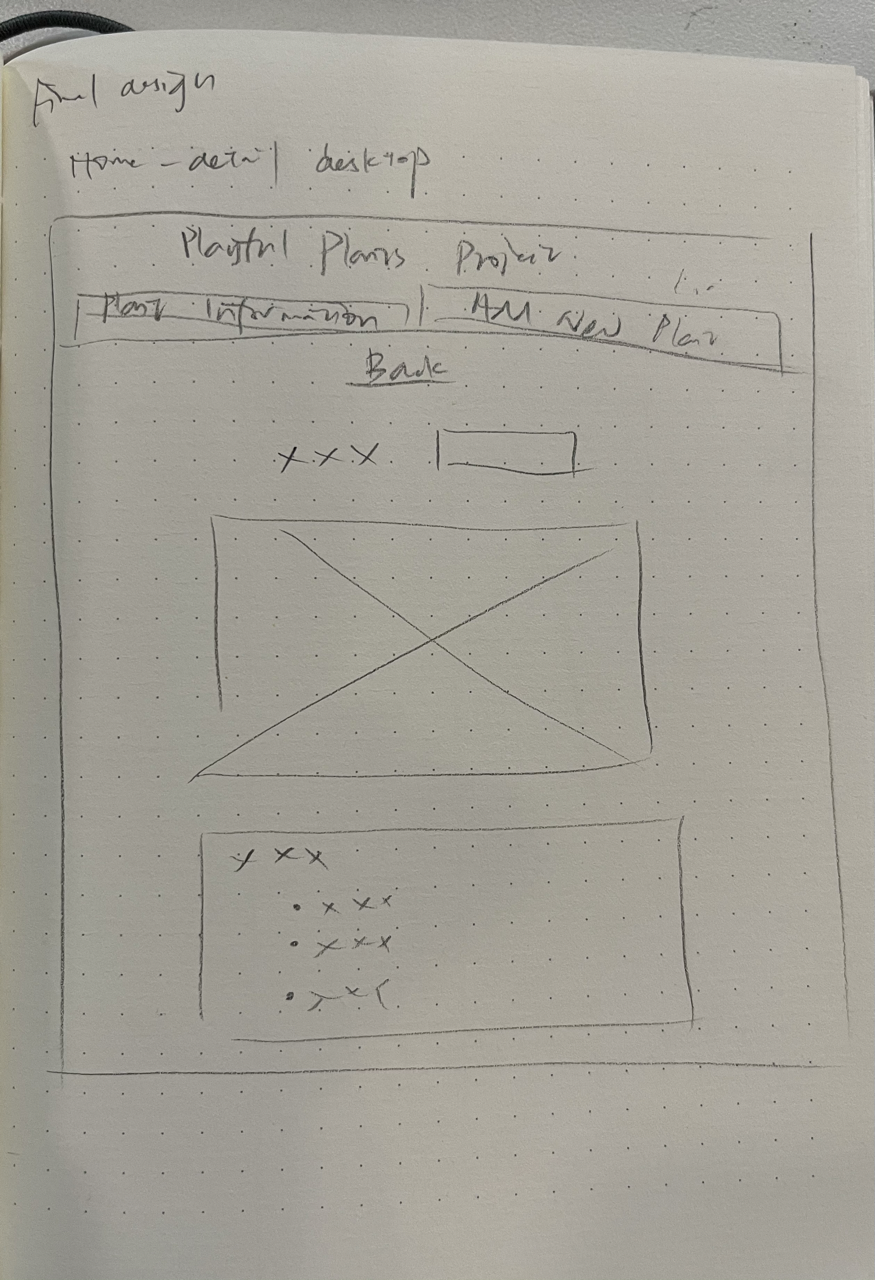 Final design
Home - detail desktop
Playful Plants Project
Plant Information
Add New Plant
Back
x x x
x x x
• x x x
• x x x
• x x x